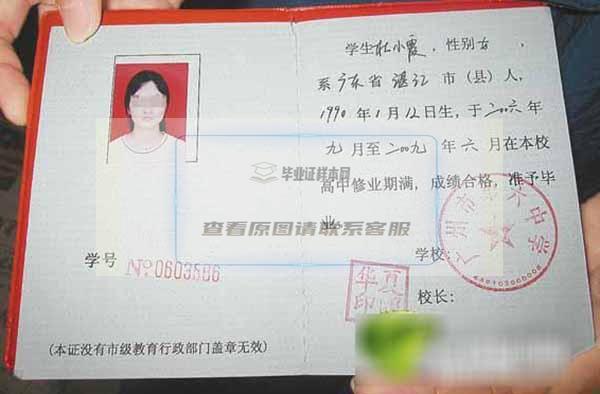 学生杜小霞，性别女，
系广东省湛江市（县）人，
1990年1月12日生，于二00六年
九月至二00九年六月在本校
高中修业期满，成绩合格，准予毕
业
毕业证样本网
查看原图请联系客服
学号 No 0603586
学校：
华夏
印
校长：
（本证没有市级教育行政部门盖章无效）